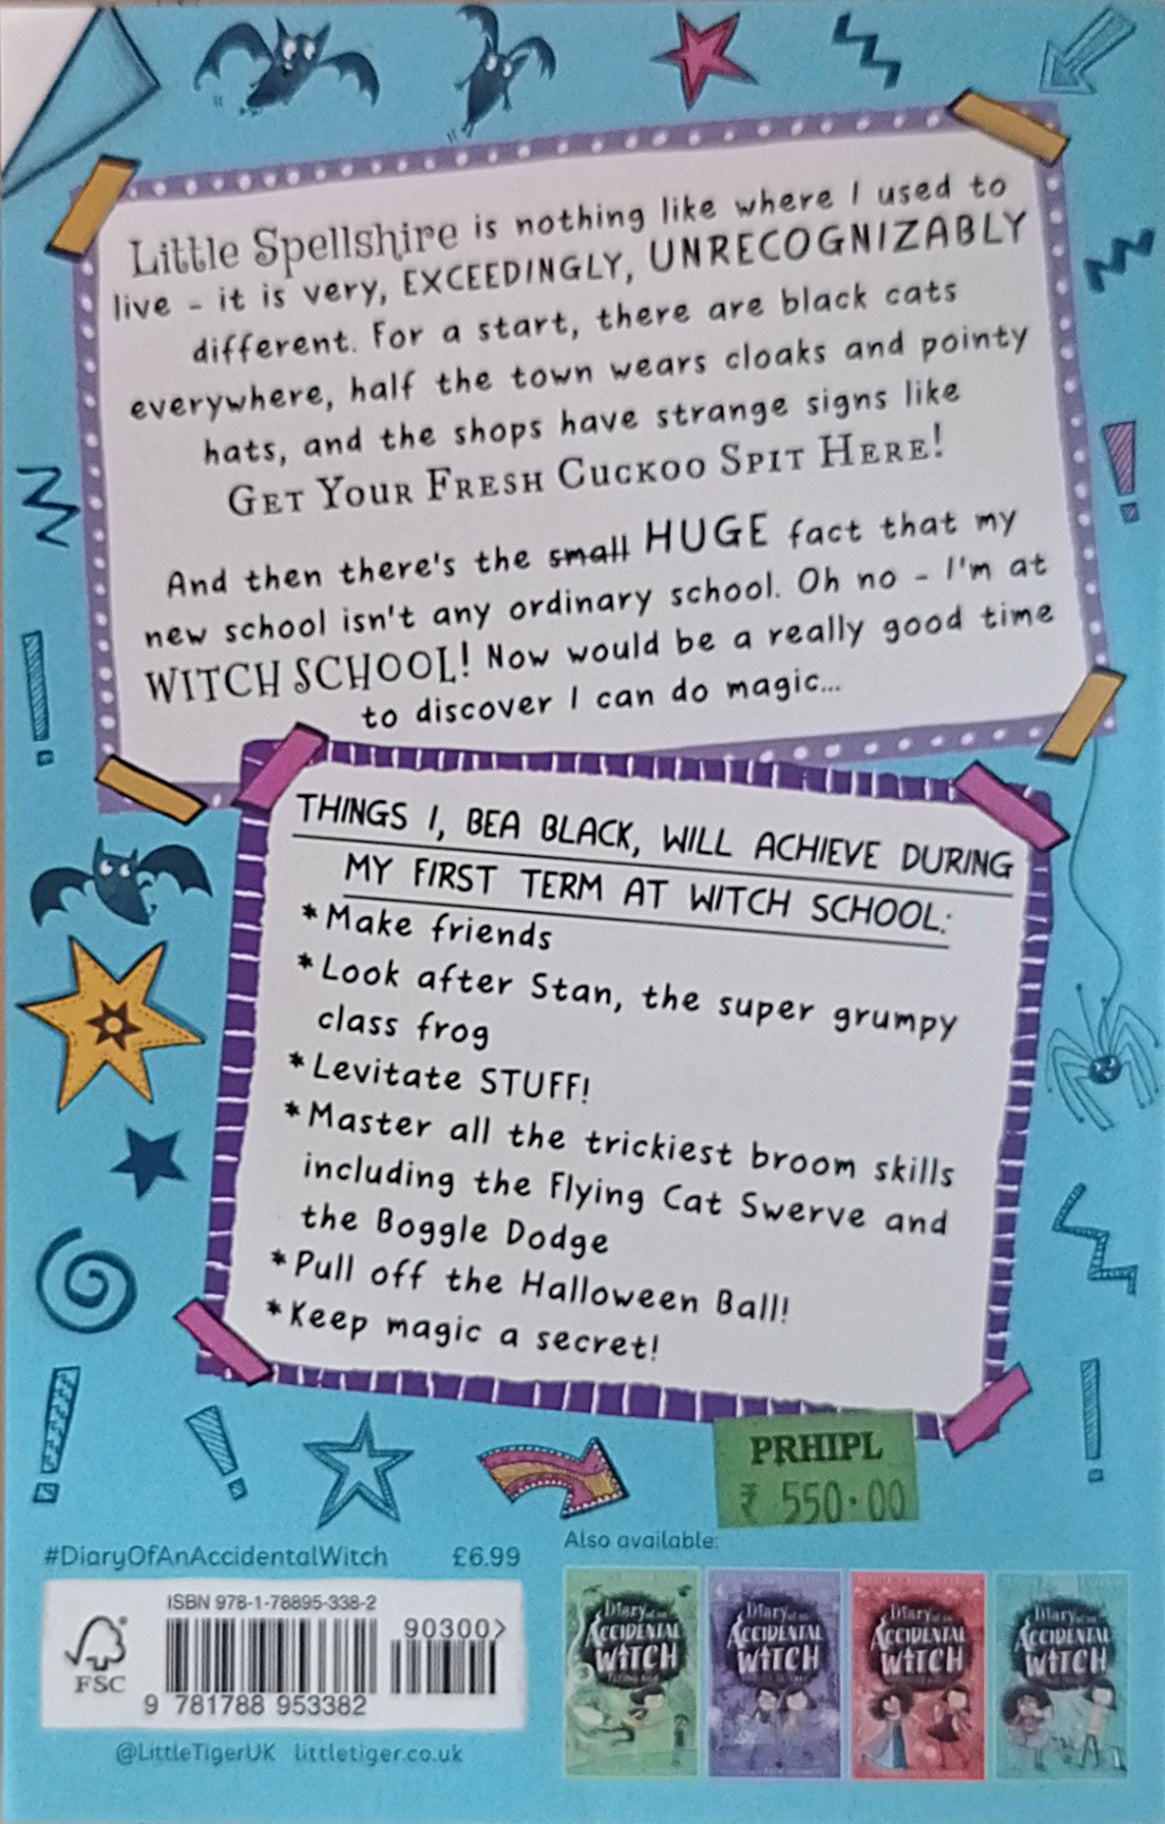 Little Spellshire is nothing like where I used to
live – it is very, EXCEEDINGLY, UNRECOGNIZABLY
different. For a start, there are black cats
everywhere, half the town wears cloaks and pointy
hats, and the shops have strange signs like
GET YOUR FRESH CUCKOO SPIT HERE!
And then there's the small HUGE fact that my
new school isn't any ordinary school. Oh no – I'm at
WITCH SCHOOL! Now would be a really good time
to discover I can do magic...
THINGS I, BEA BLACK, WILL ACHIEVE DURING
MY FIRST TERM AT WITCH SCHOOL:
*Make friends
*Look after Stan, the super grumpy
class frog
*Levitate STUFF!
*Master all the trickiest broom skills
including the Flying Cat Swerve and
the Boggle Dodge
*Pull off the Halloween Ball!
*Keep magic a secret!
PRHIPL
₹ 550.00
#DiaryOfAnAccidentalWitch £6.99
ISBN 978-1-78895-338-2
90300>
FSC
9 781788 953382
@LittleTigerUK littletiger.co.uk
Also available:
Diary of an
ACCIDENTAL
WiTCH
Diary of an
ACCIDENTAL
WiTCH
Diary of an
ACCIDENTAL
WiTCH
Diary of an
ACCIDENTAL
WiTCH